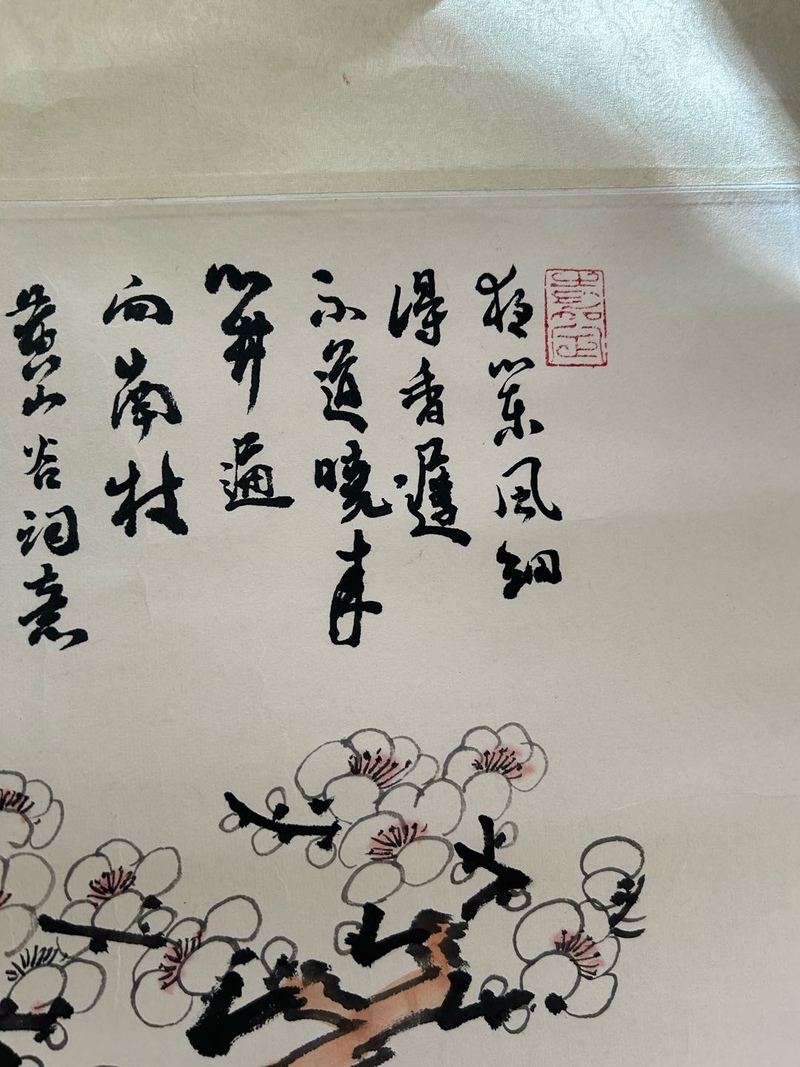 夜闌風細
得香遲
不道曉来
開遍
向南枝
黄山谷詞意